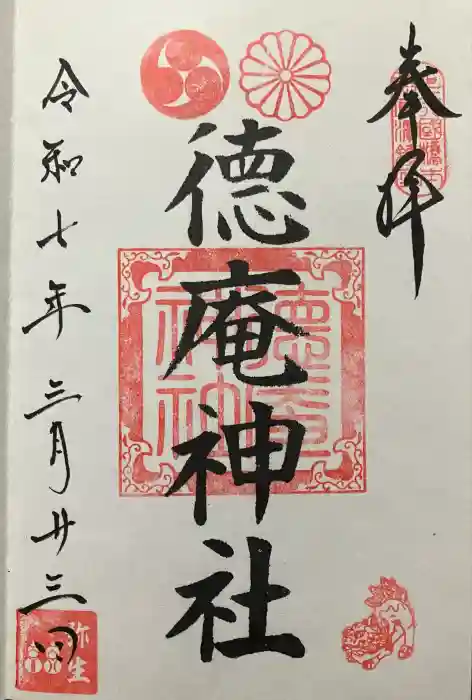 奉拝
徳庵神社
令和七年三月廿三日
徳庵神社
弥生